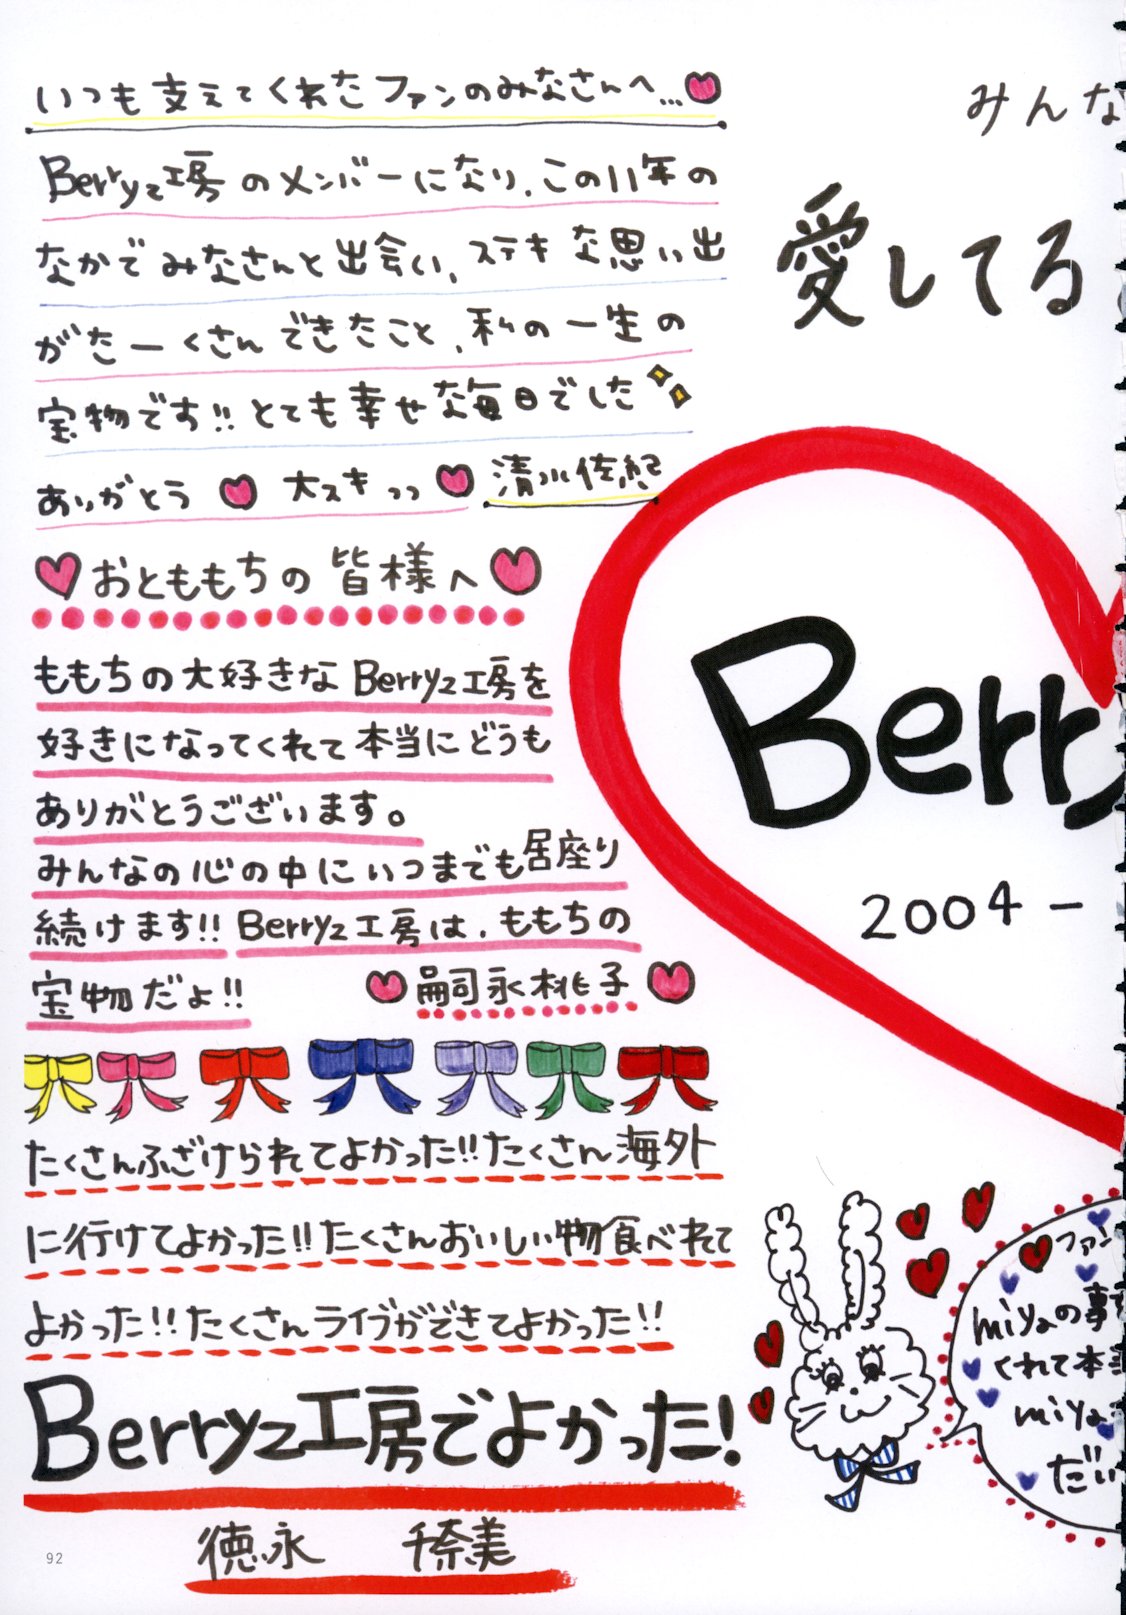 いつも支えてくれたファンのみなさんへ…
Berryz工房のメンバーになり、この11年の
なかでみなさんと出会い、ステキな思い出
がたーくさんできたこと、私の一生の
宝物です!!とても幸せな毎日でした
ありがとう 大スキっっ 清水佐紀
おとももちの皆様へ
ももちの大好きなBerryz工房を
好きになってくれて本当にどうも
ありがとうございます。
みんなの心の中にいつまでも居座り
続けます!! Berryz工房は、ももちの
宝物だよ!!
嗣永桃子
たくさんふざけられてよかった!!たくさん海外
に行けてよかった!!たくさんおいしい物食べれて
よかった!!たくさんライブができてよかった!!
Berryz工房でよかった!
徳永 千奈美
92
みんな
愛してる
Berry
2004 -
ファン
miyaの事
くれて本
miya
だい